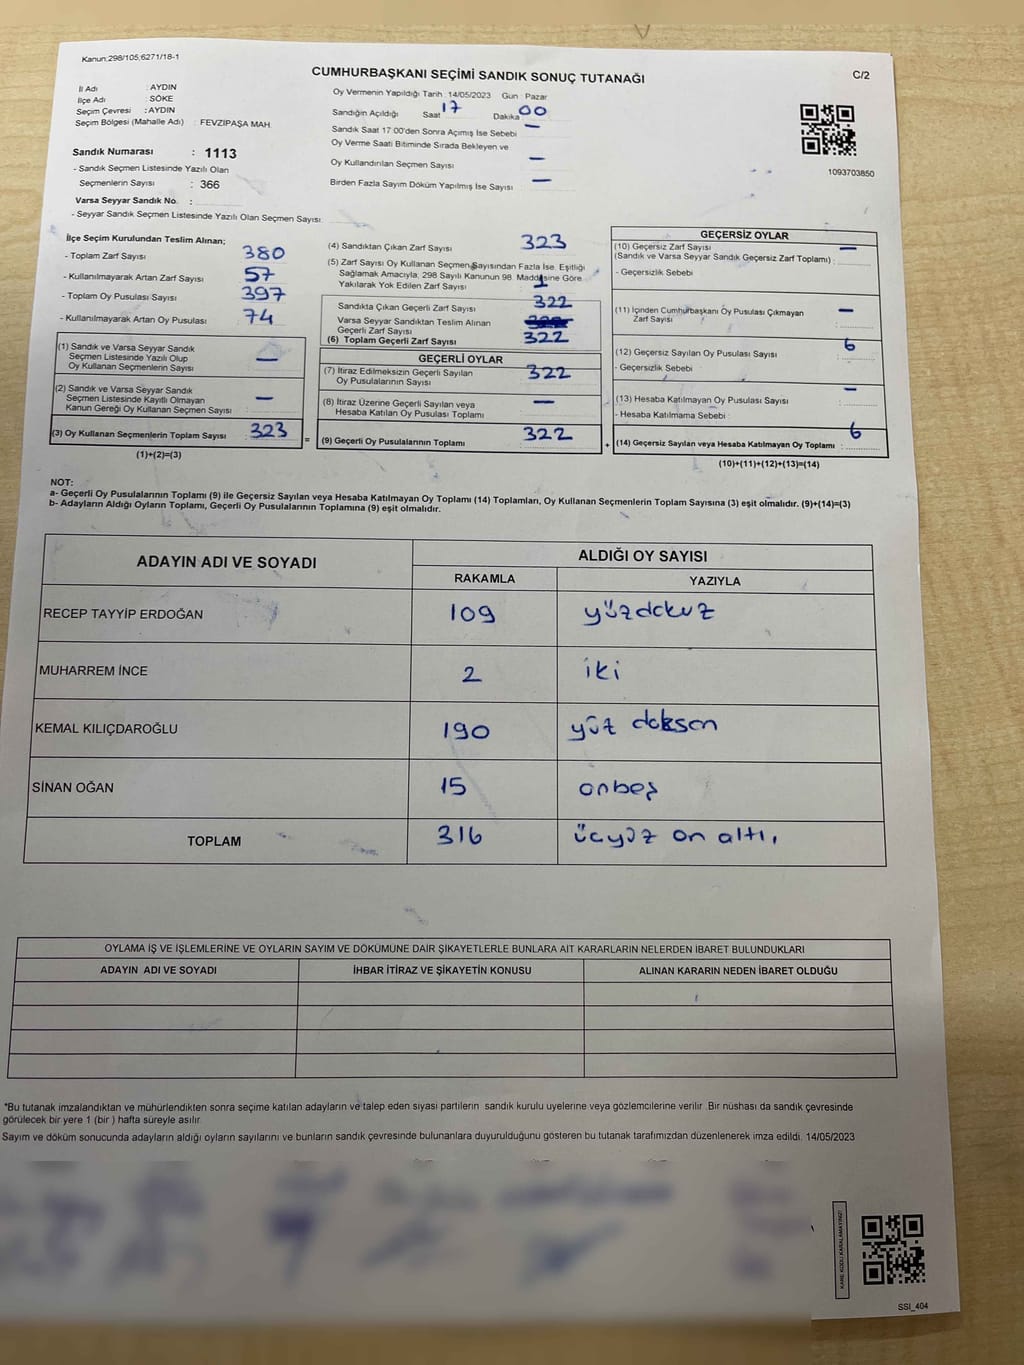 Kanun:298/105;6271/18-1
CUMHURBAŞKANI SEÇİMİ SANDIK SONUÇ TUTANAĞI
C/2
İl Adı : AYDIN
İlçe Adı : SÖKE
Seçim Çevresi : AYDIN
Seçim Bölgesi (Mahalle Adı) : FEVZİPAŞA MAH.
Sandık Numarası : 1113
- Sandık Seçmen Listesinde Yazılı Olan
Seçmenlerin Sayısı : 366
Varsa Seyyar Sandık No :
- Seyyar Sandık Seçmen Listesinde Yazılı Olan Seçmen Sayısı
Oy Vermenin Yapıldığı Tarih : 14/05/2023 Gün : Pazar
Sandığın Açıldığı Saat 17 Dakika 00
Sandık Saat 17:00'den Sonra Açımış İse Sebebi —
Oy Verme Saati Bitiminde Sırada Bekleyen ve
Oy Kullandırılan Seçmen Sayısı —
Birden Fazla Sayım Döküm Yapılmış İse Sayısı —
1093703850
İlçe Seçim Kurulundan Teslim Alınan;
- Toplam Zarf Sayısı 380
- Kullanılmayarak Artan Zarf Sayısı 57
- Toplam Oy Pusulası Sayısı 397
- Kullanılmayarak Artan Oy Pusulası 74
(1) Sandık ve Varsa Seyyar Sandık
Seçmen Listesinde Yazılı Olup
Oy Kullanan Seçmenlerin Sayısı —
(2) Sandık ve Varsa Seyyar Sandık
Seçmen Listesinde Kayıtlı Olmayan
Kanun Gereği Oy Kullanan Seçmen Sayısı —
(3) Oy Kullanan Seçmenlerin Toplam Sayısı : 323
(1)+(2)=(3)
(4) Sandıktan Çıkan Zarf Sayısı 323
(5) Zarf Sayısı Oy Kullanan Seçmen Sayısından Fazla İse, Eşitliği
Sağlamak Amacıyla; 298 Sayılı Kanunun 98. Maddesine Göre
Yakılarak Yok Edilen Zarf Sayısı 1
Sandıkta Çıkan Geçerli Zarf Sayısı 322
Varsa Seyyar Sandıktan Teslim Alınan
Geçerli Zarf Sayısı
(6) Toplam Geçerli Zarf Sayısı 322
GEÇERLİ OYLAR
(7) İtiraz Edilmeksizin Geçerli Sayılan
Oy Pusulalarının Sayısı 322
(8) İtiraz Üzerine Geçerli Sayılan veya
Hesaba Katılan Oy Pusulası Toplamı —
= (9) Geçerli Oy Pusulalarının Toplamı 322
GEÇERSİZ OYLAR
(10) Geçersiz Zarf Sayısı —
(Sandık ve Varsa Seyyar Sandık Geçersiz Zarf Toplamı) :
- Geçersizlik Sebebi
(11) İçinden Cumhurbaşkanı Oy Pusulası Çıkmayan
Zarf Sayısı —
(12) Geçersiz Sayılan Oy Pusulası Sayısı 6
- Geçersizlik Sebebi
(13) Hesaba Katılmayan Oy Pusulası Sayısı —
- Hesaba Katılmama Sebebi :
+ (14) Geçersiz Sayılan veya Hesaba Katılmayan Oy Toplamı : 6
(10)+(11)+(12)+(13)=(14)
NOT:
a- Geçerli Oy Pusulalarının Toplamı (9) ile Geçersiz Sayılan veya Hesaba Katılmayan Oy Toplamı (14) Toplamları, Oy Kullanan Seçmenlerin Toplam Sayısına (3) eşit olmalıdır. (9)+(14)=(3)
b- Adayların Aldığı Oyların Toplamı, Geçerli Oy Pusulalarının Toplamına (9) eşit olmalıdır.
ADAYIN ADI VE SOYADI ALDIĞI OY SAYISI
RAKAMLA YAZIYLA
RECEP TAYYİP ERDOĞAN 109 yüzdokuz
MUHARREM İNCE 2 iki
KEMAL KILIÇDAROĞLU 190 yüz doksan
SİNAN OĞAN 15 onbeş
TOPLAM 316 üçyüz on altı,
OYLAMA İŞ VE İŞLEMLERİNE VE OYLARIN SAYIM VE DÖKÜMÜNE DAİR ŞİKAYETLERLE BUNLARA AİT KARARLARIN NELERDEN İBARET BULUNDUKLARI
ADAYIN ADI VE SOYADI İHBAR İTİRAZ VE ŞİKAYETİN KONUSU ALINAN KARARIN NEDEN İBARET OLDUĞU
*Bu tutanak imzalandıktan ve mühürlendikten sonra seçime katılan adayların ve talep eden siyasi partilerin sandık kurulu uyelerine veya gözlemcilerine verilir .Bir nüshası da sandık çevresinde
görülecek bir yere 1 (bir ) hafta süreyle asılır.
Sayım ve döküm sonucunda adayların aldığı oyların sayılarını ve bunların sandık çevresinde bulunanlara duyurulduğunu gösteren bu tutanak tarafımızdan düzenlenerek imza edildi. 14/05/2023
KARE KODU KARALAMAYINIZ!
SSI_404